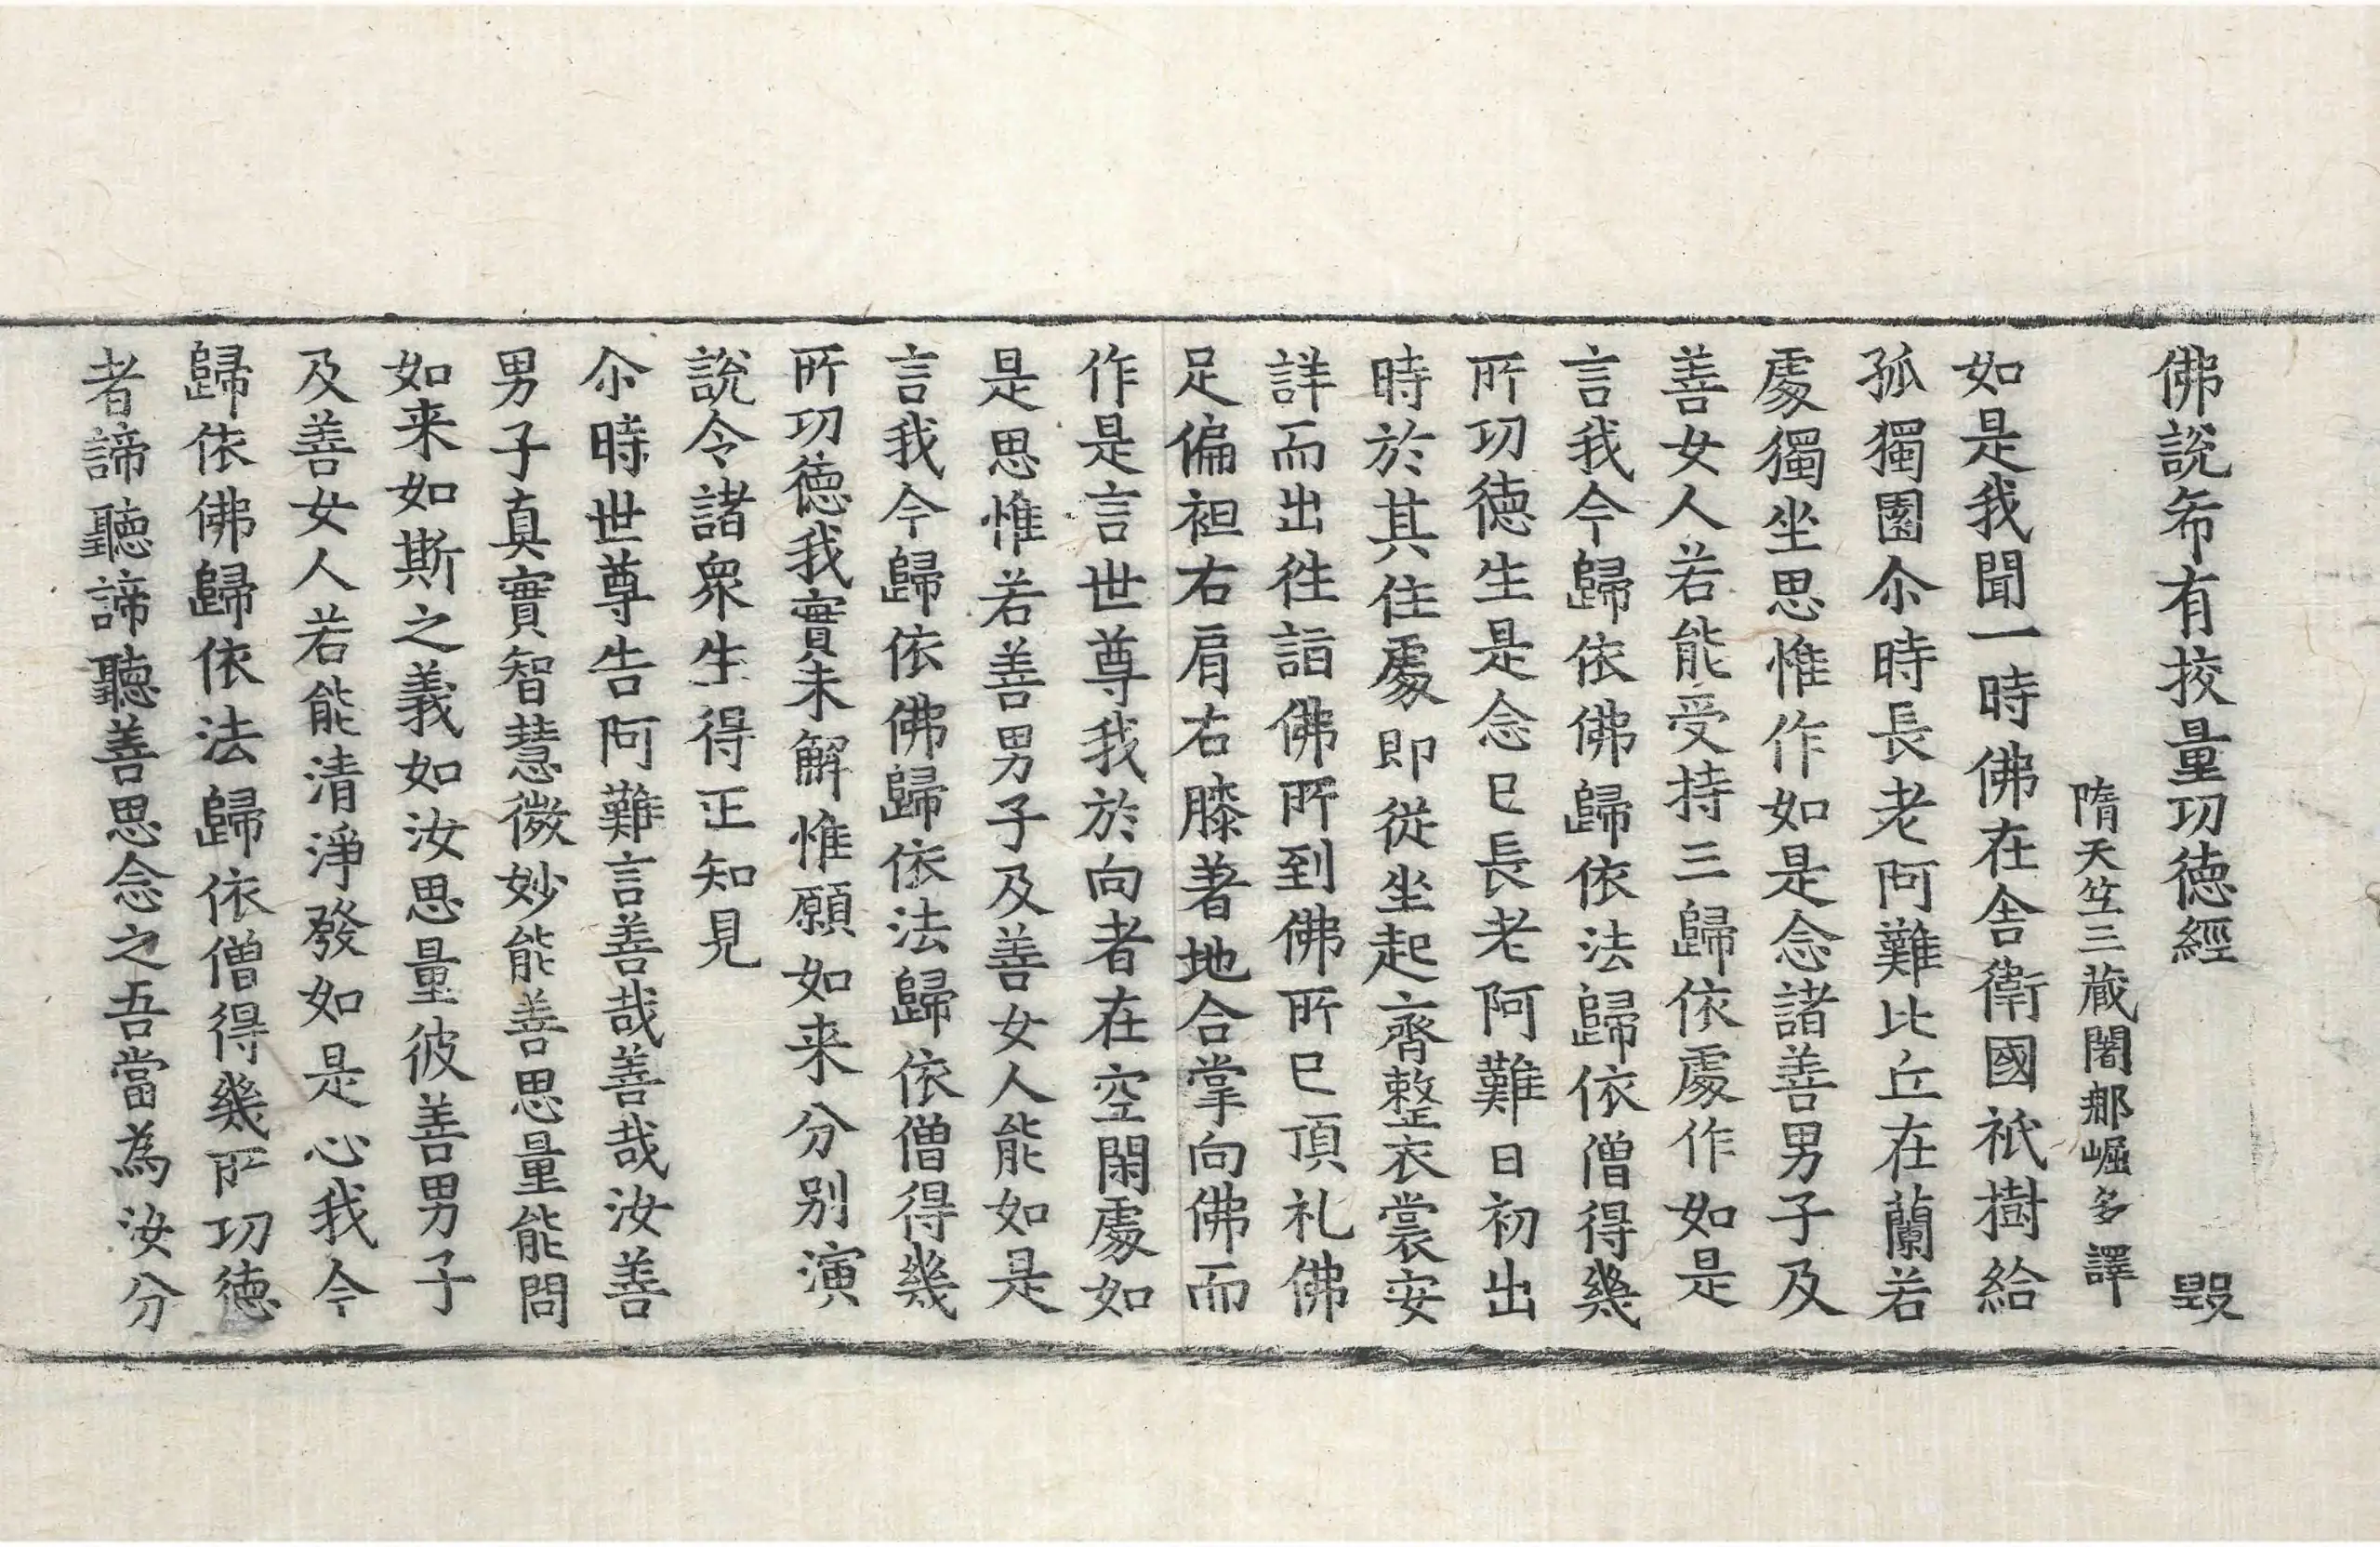 佛說希有挍量功德經　毀
隋天竺三蔵闍那崛多譯
如是我聞一時佛在舎衛國祇樹給
孤獨園尒時長老阿難比丘在蘭若
處獨坐思惟作如是念諸善男子及
善女人若能受持三歸依處作如是
言我今歸依佛歸依法歸依僧得幾
所功徳生是念已長老阿難日初出
時於其住處即從坐起齊整衣裳安
詳而出徃詣佛所到佛所已頂礼佛
足偏袒右肩右膝著地合掌向佛而
作是言世尊我於向者在空閑處如
是思惟若善男子及善女人能如是
言我今歸依佛歸依法歸依僧得幾
所功徳我實未解惟願如来分别演
說令諸衆生得正知見
尒時世尊告阿難言善哉善哉汝善
男子真實智慧微妙能善思量能問
如来如斯之義如汝思量彼善男子
及善女人若能清淨發如是心我今
歸依佛歸依法歸依僧得幾所功徳
者諦聽諦聽善思念之吾當為汝分